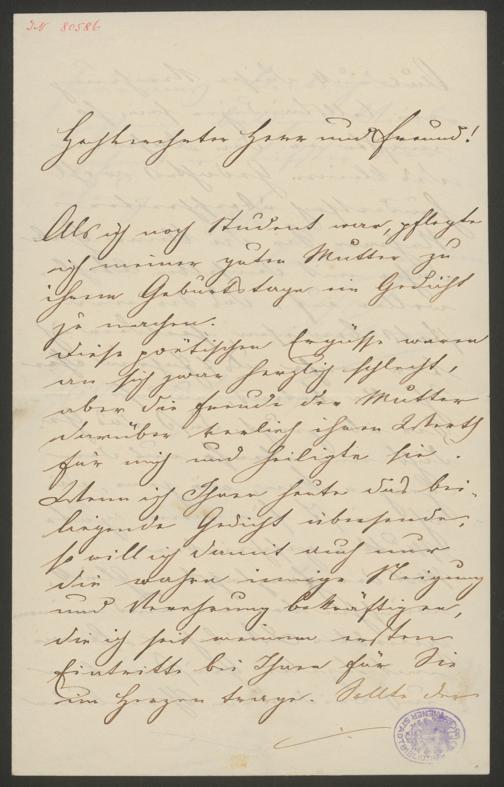 IN 80586
Hochverehrter Herr und Freund!
Als ich noch Student war, pflegte
ich meiner guten Mutter zu
ihrem Geburtstage ein Gedicht
zu machen.
Diese poëtischen Ergüsse waren
an sich zwar herzlich schlecht,
aber die Freude der Mutter
darüber verlieh ihnen Werth
für mich und heiligte sie.
Wenn ich Ihnen heute das bei-
liegende Gedicht übersende,
so will ich damit auch nur
die wahre innige Neigung
und Verehrung bekräftigen,
die ich seit meinem ersten
Eintritte bei Ihnen für Sie
im Herzen trage. Sollte der
WIENER STADTBIBLIOTHEK